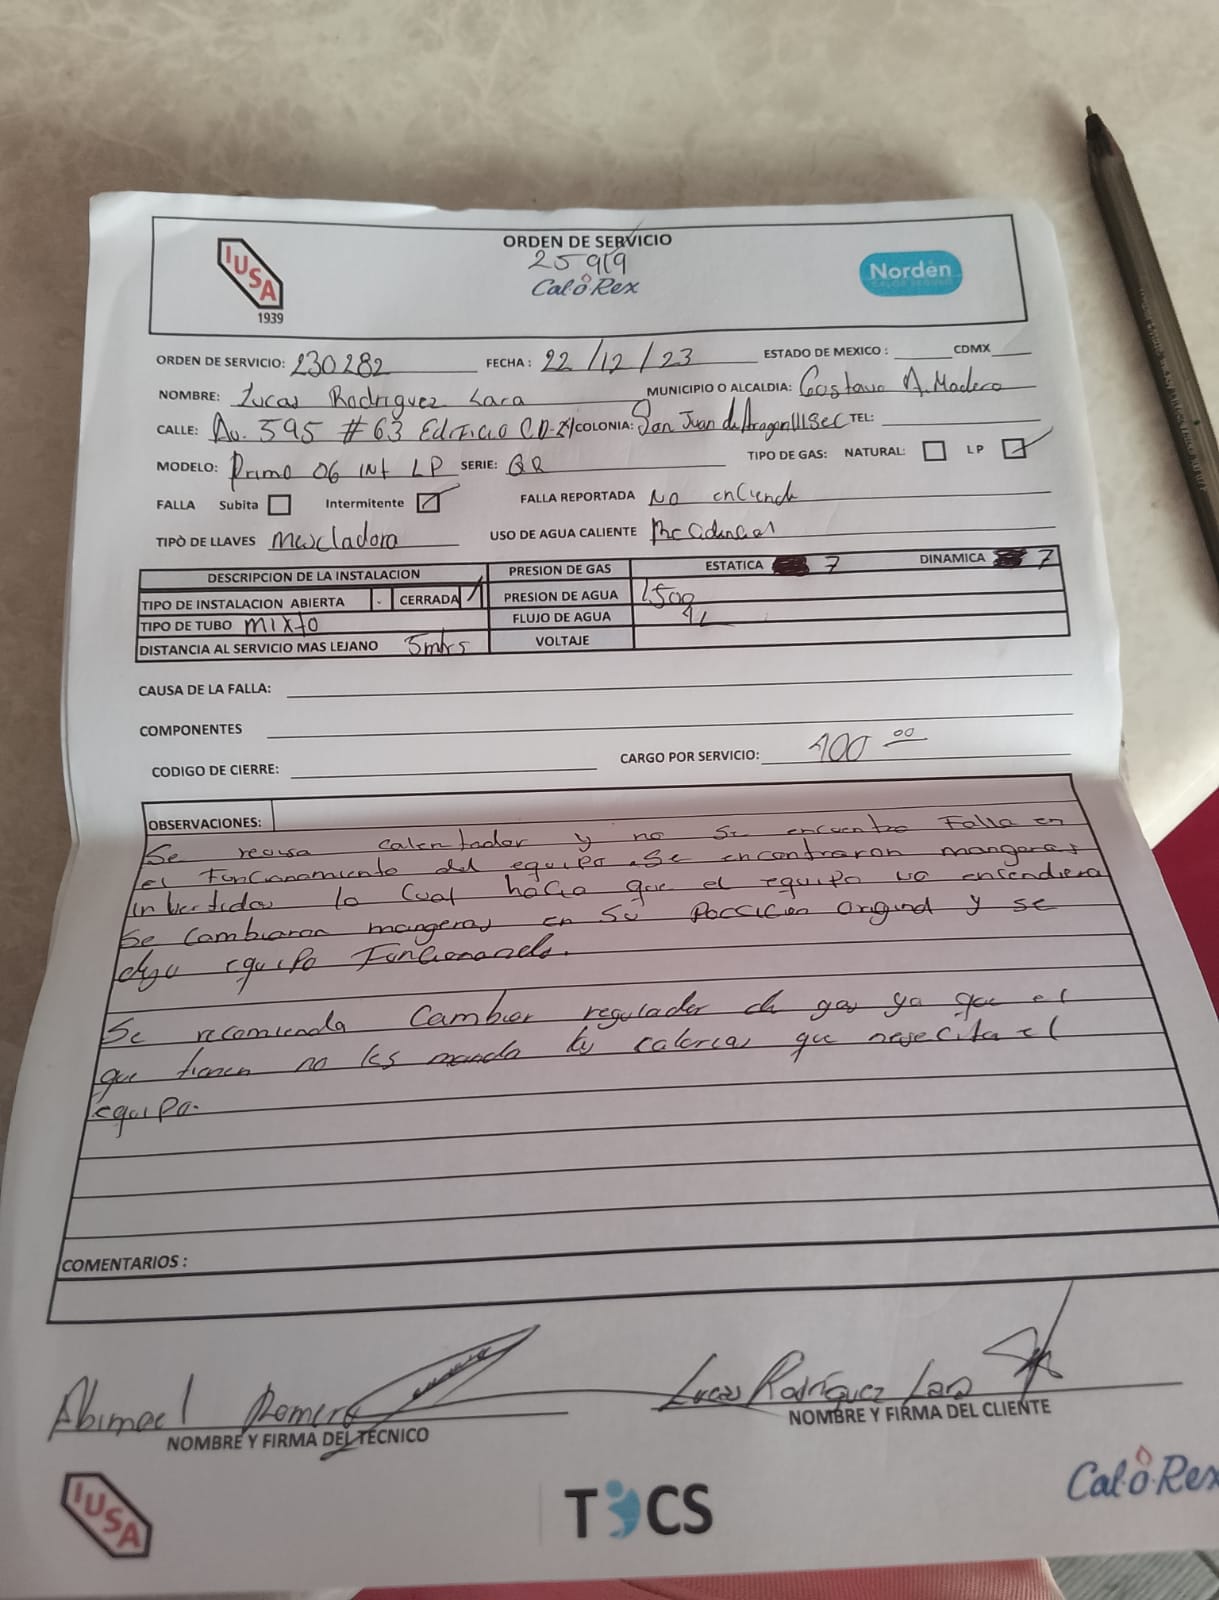 IUSA
1939
ORDEN DE SERVICIO
25919
Cal-o-Rex
Nordën
ORDEN DE SERVICIO: 230282 FECHA: 22/12/23 ESTADO DE MEXICO: CDMX
NOMBRE: Lucas Rodríguez Lara MUNICIPIO O ALCALDIA: Gostavo A. Madero
CALLE: Av. 595 #63 EdIFIcIO COLONIA: San Juan de Aragon III Sec TEL:
MODELO: Primo 06 Int LP SERIE: QR TIPO DE GAS: NATURAL: LP
FALLA Subita Intermitente FALLA REPORTADA No enciende
TIPO DE LLAVES mescladora USO DE AGUA CALIENTE Recidencial
DESCRIPCION DE LA INSTALACION PRESION DE GAS ESTATICA 7 DINAMICA 7
TIPO DE INSTALACION ABIERTA CERRADA PRESION DE AGUA 1.500
TIPO DE TUBO mixto FLUJO DE AGUA 4L
DISTANCIA AL SERVICIO MAS LEJANO 5mtrs VOLTAJE
CAUSA DE LA FALLA:
COMPONENTES
CODIGO DE CIERRE: CARGO POR SERVICIO: 400 00
OBSERVACIONES:
Se revisa calentador y no se encuentra Falla en
el Funcionamiento del equipo. Se encontraron mangeras
invertidas lo cual hacia que el equipo no encendiera
Se cambiaron mangeras en su Poccicion Original y se
deja equipo Funcionando.
Se recomienda Cambiar regulador de gas ya que el
que tienen no les manda las calorias que nesecita el
equipo.
COMENTARIOS:
Abimael Romero Lucas Rodríguez Lara
NOMBRE Y FIRMA DEL TECNICO NOMBRE Y FIRMA DEL CLIENTE
IUSA TICS Cal-o-Rex